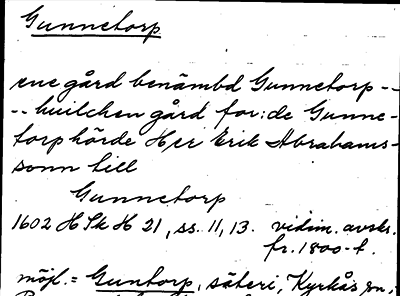 Gunnetorp
ene gård benämbd Gunnetorp --
-- huilchen gård for:de Gunne-
torp hörde Her Erik Abrahams-
sonn till
Gunnetorp
1602 H Sk H 21, ss. 11, 13. vidim. avskr.
fr. 1800-t.
möjl. = Guntorp, säteri, Kyrkås sn,